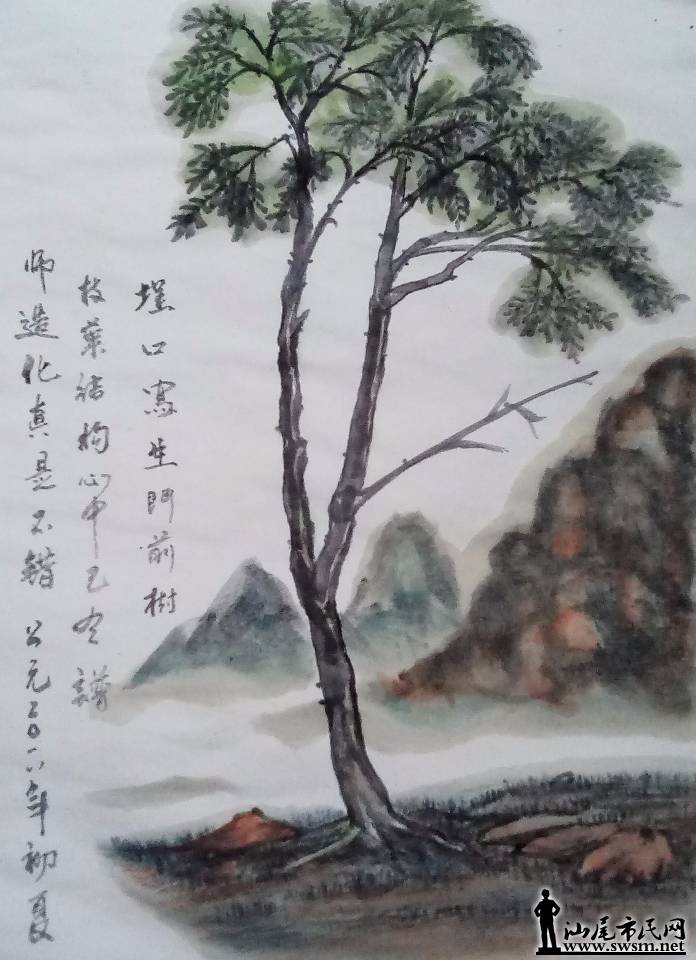 埕口寫生門前樹
枝葉结构心中已有譜
师造化真是不错 公元二0一八年初夏
汕尾市民网
www.swsm.net